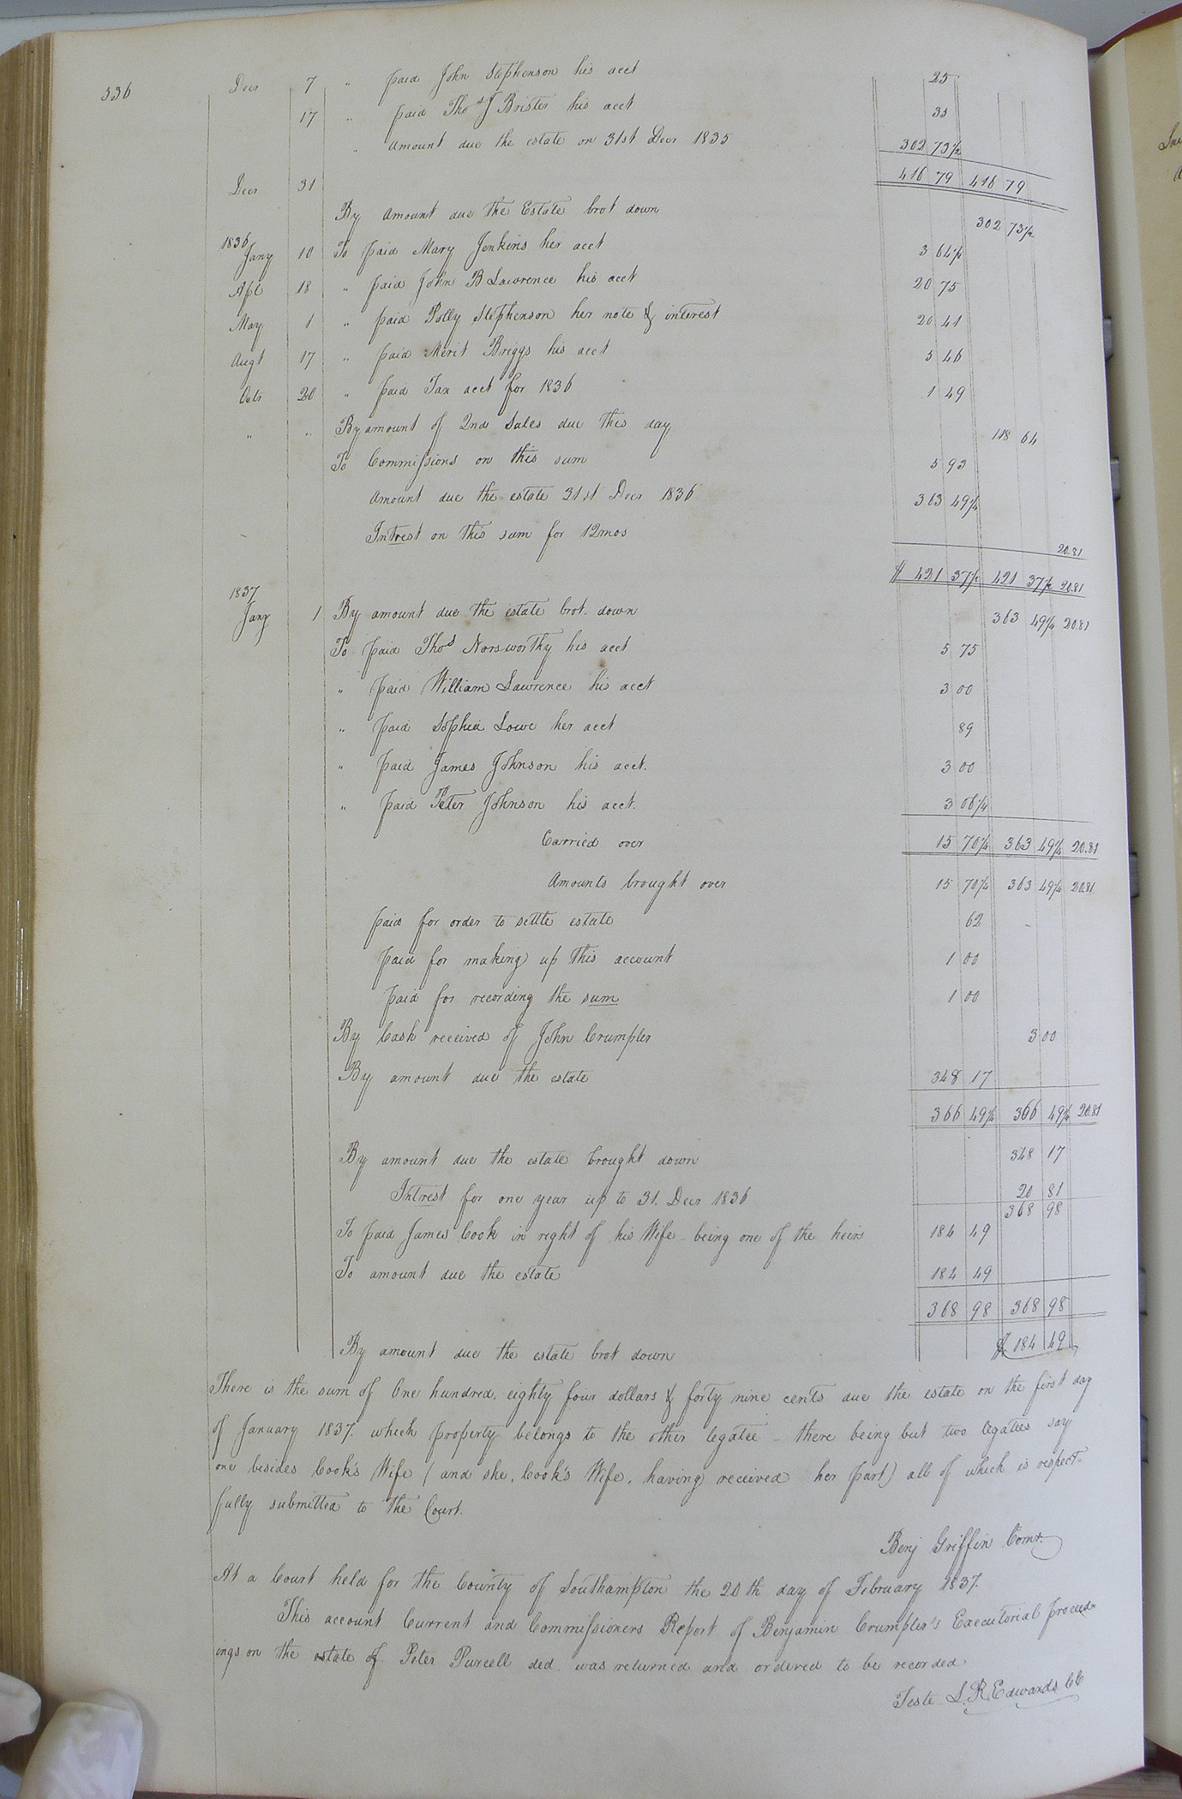 536
Decr 7 " paid John Stephenson his acct 25
17 " paid Thos J Brister his acct 35
" Amount due the estate on 31st Decr 1835 302 73½
Decr 31 416 79 416 79
By Amount due the Estate brot down 302 73½
1836
Jany 10 To paid Mary Jenkins her acct 3 64½
Apl 18 " paid John B Lawrence his acct 20 75
May 1 " paid Polly Stephenson her note & interest 20 41
Augt 17 " paid Merit Briggs his acct 5 46
Octr 20 " paid Tax acct for 1836 1 49
" " By amount of 2nd Sales due this day 118 64
To Commissions on this sum 5 93
Amount due the estate 31st Decr 1836 363 49¼
Intrest on this sum for 12mos 20.81
$ 421 37½ 421 37½ 20.81
1837
Jany 1 By amount due the estate brot. down 363 49¼ 20.81
To paid Thos Norsworthy his acct 5 75
" paid William Lawrence his acct 3 00
" paid Sophia Lowe her acct 89
" paid James Johnson his acct. 3 00
" paid Peter Johnson his acct. 3 06¼
Carried over 15 70¼ 363 49¼ 20.81
Amounts brought over 15 70¼ 363 49¼ 20.81
paid for order to settle estate 62
paid for making up this account 1 00
paid for recording the sum 1 00
By Cash received of John Crumpler 3 00
By amount due the estate 348 17
366 49¼ 366 49¼ 20.81
By amount due the estate brought down 348 17
Intrest for one year up to 31. Decr 1836 20 81
368 98
To paid James Cook in right of his Wife being one of the heirs 184 49
To amount due the estate 184 49
368 98 368 98
By amount due the estate brot down $ 184 49
There is the sum of One hundred eighty four dollars & forty nine cents due the estate on the first day
of January 1837. which property belongs to the other legatee - there being but two legatees say
one besides Cook's Wife (and she, Cook's Wife, having received her part) all of which is respect-
fully submitted to the Court.
Benj Griffin Comr.
At a Court held for the County of Southampton the 20th day of February 1837.
This account Current and Commissioners Report of Benjamin Crumpler's Executorial proceed-
ings on the estate of Peter Purcell decd was returned and ordered to be recorded.
Teste L. R. Edwards CC